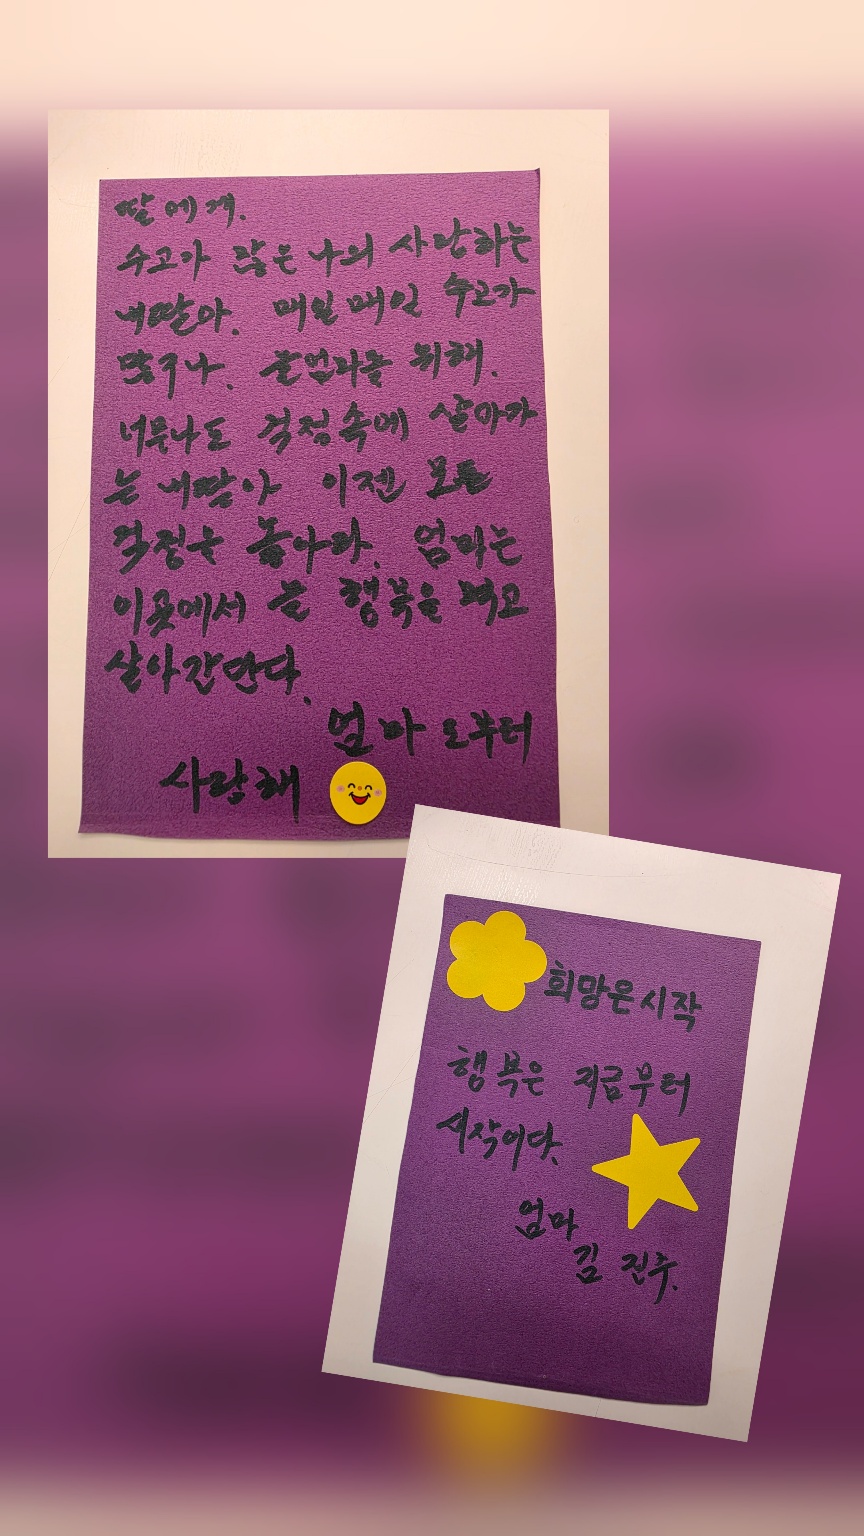 딸에게.
수고가 많은 나의 사랑하는
내딸아. 매일매일 수고가
많구나. 늘엄마를 위해.
너무나도 걱정속에 살아가
는 내딸아 이젠 모든
걱정을 놓아라. 엄마는
이곳에서 늘 행복을 먹고
살아간단다.
엄마 로부터
사랑해
희망은시작
행복은 지금부터
시작이다.
엄마
김 진주.